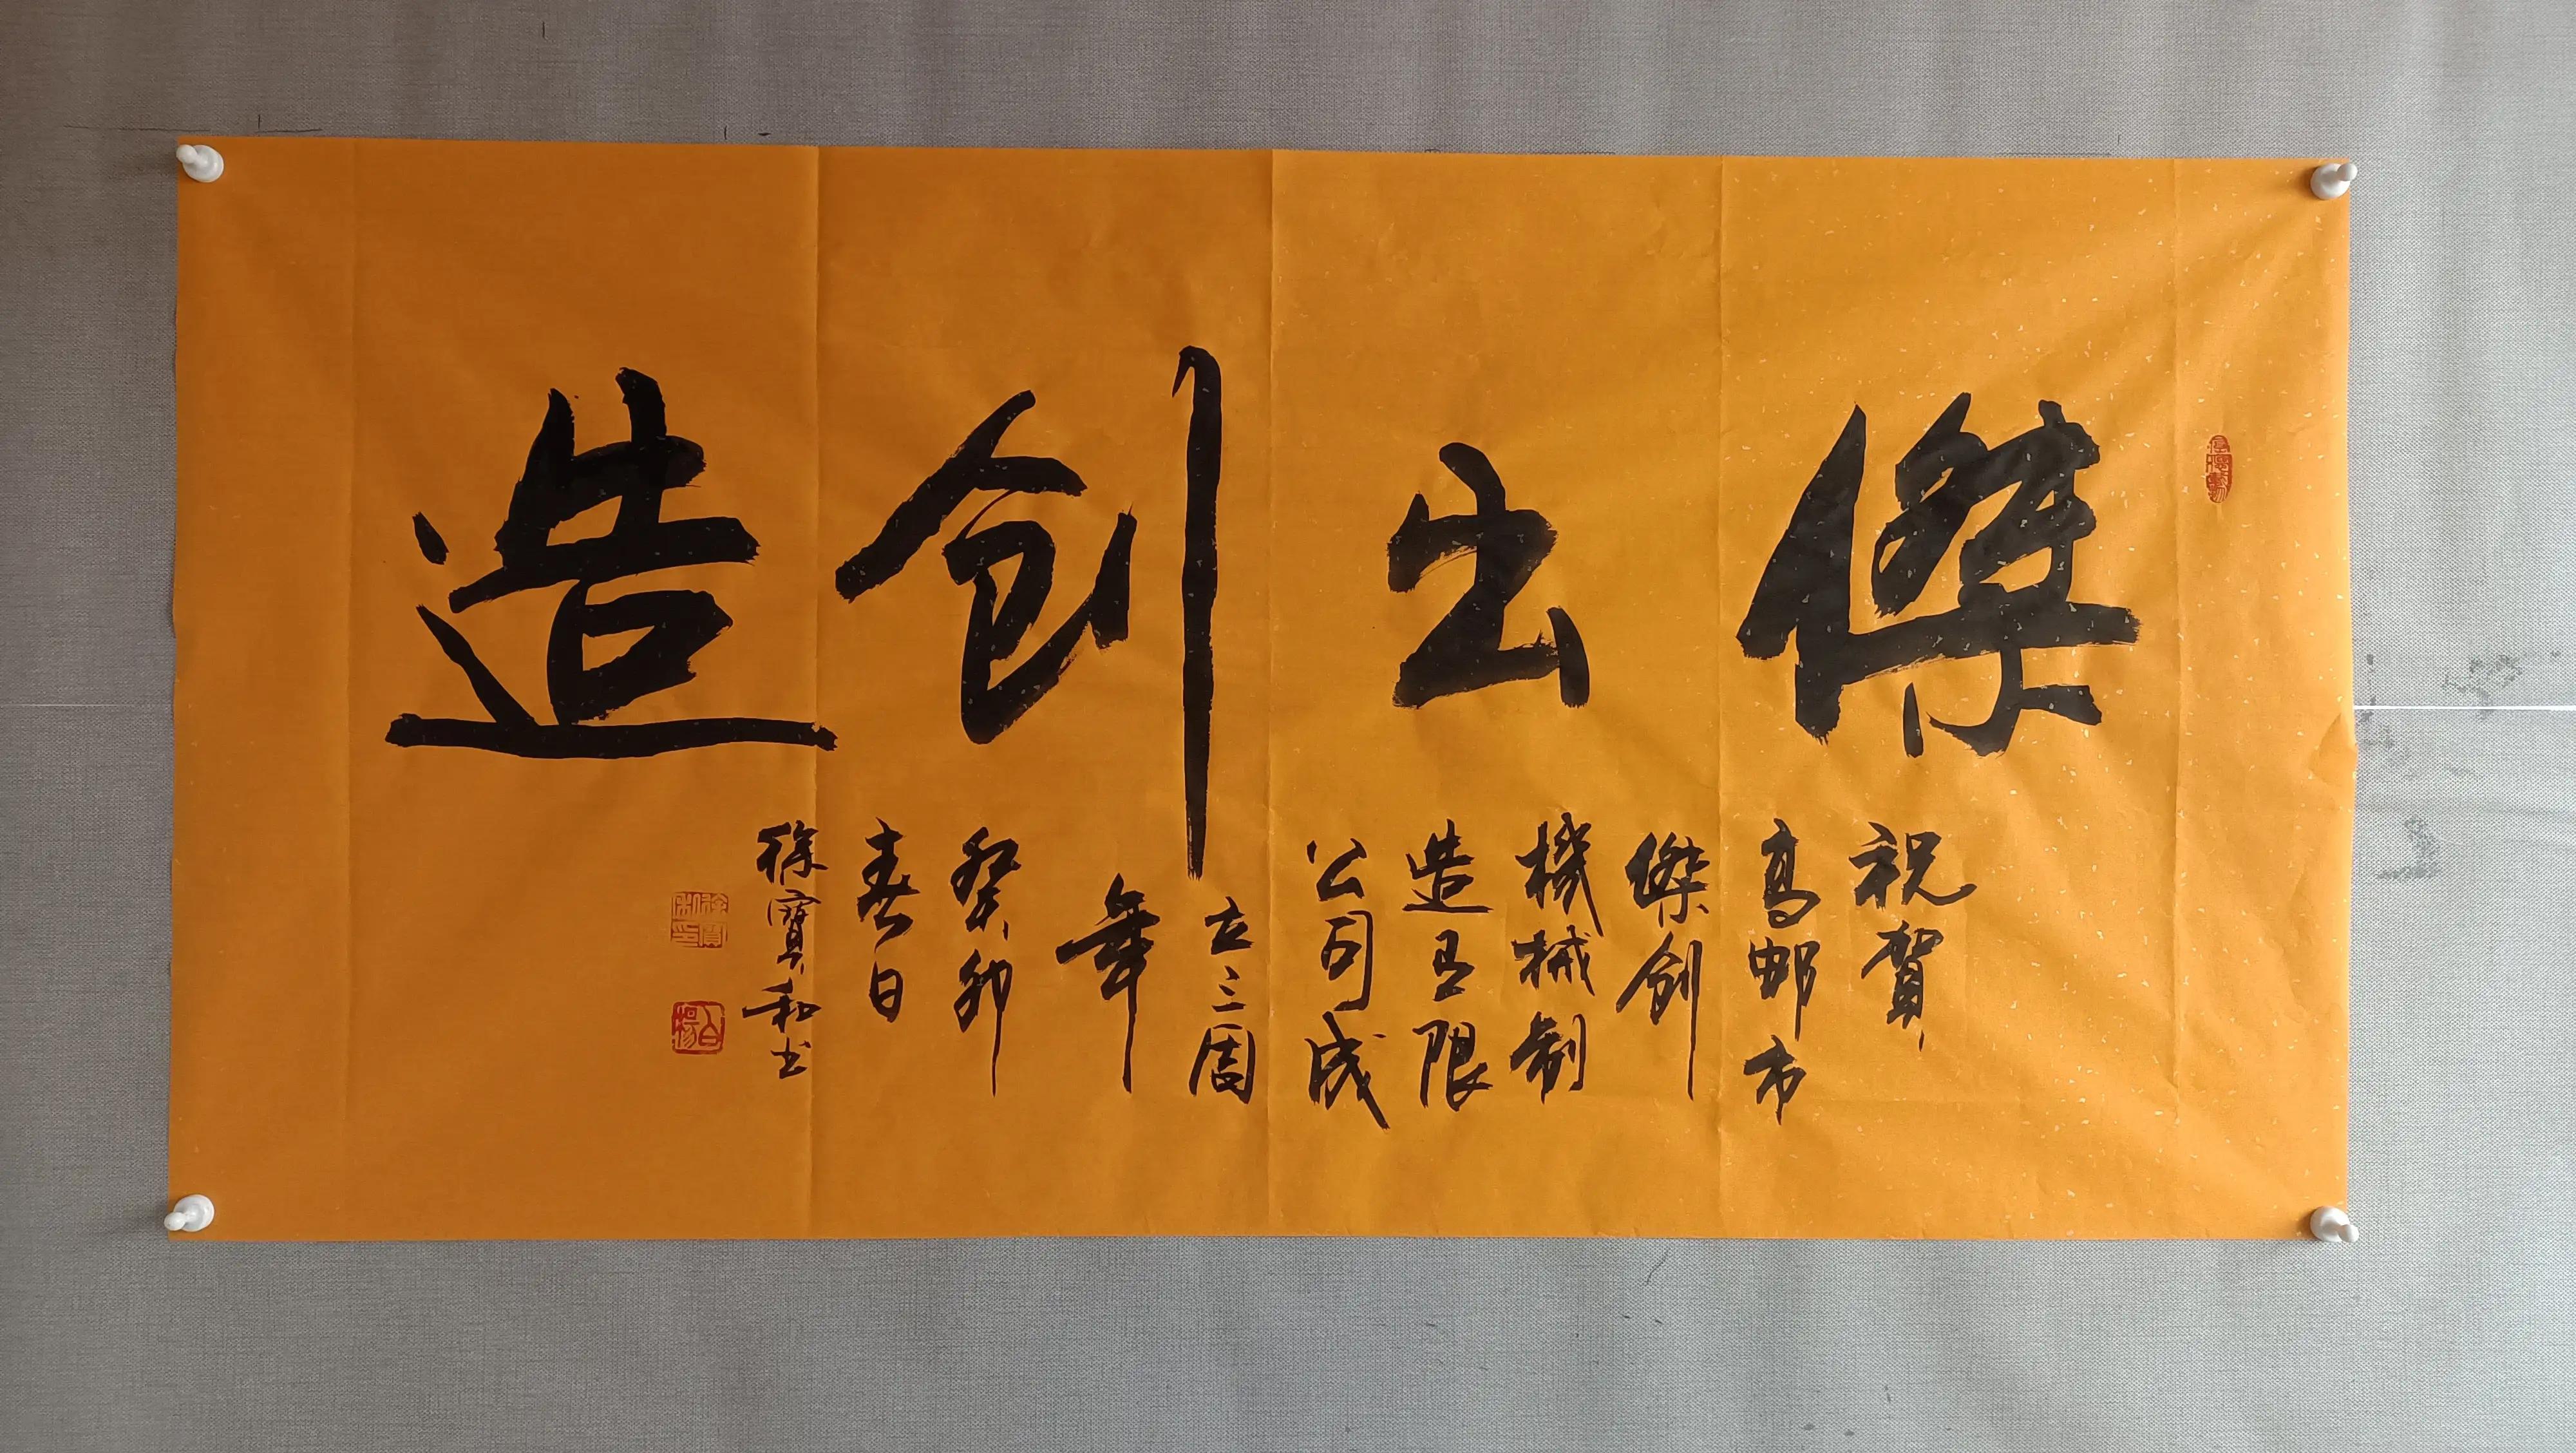 傑出創造
祝賀
高邮市
傑創
機械制
造有限
公司成
立三周
年
癸卯
春日
徐寶和书